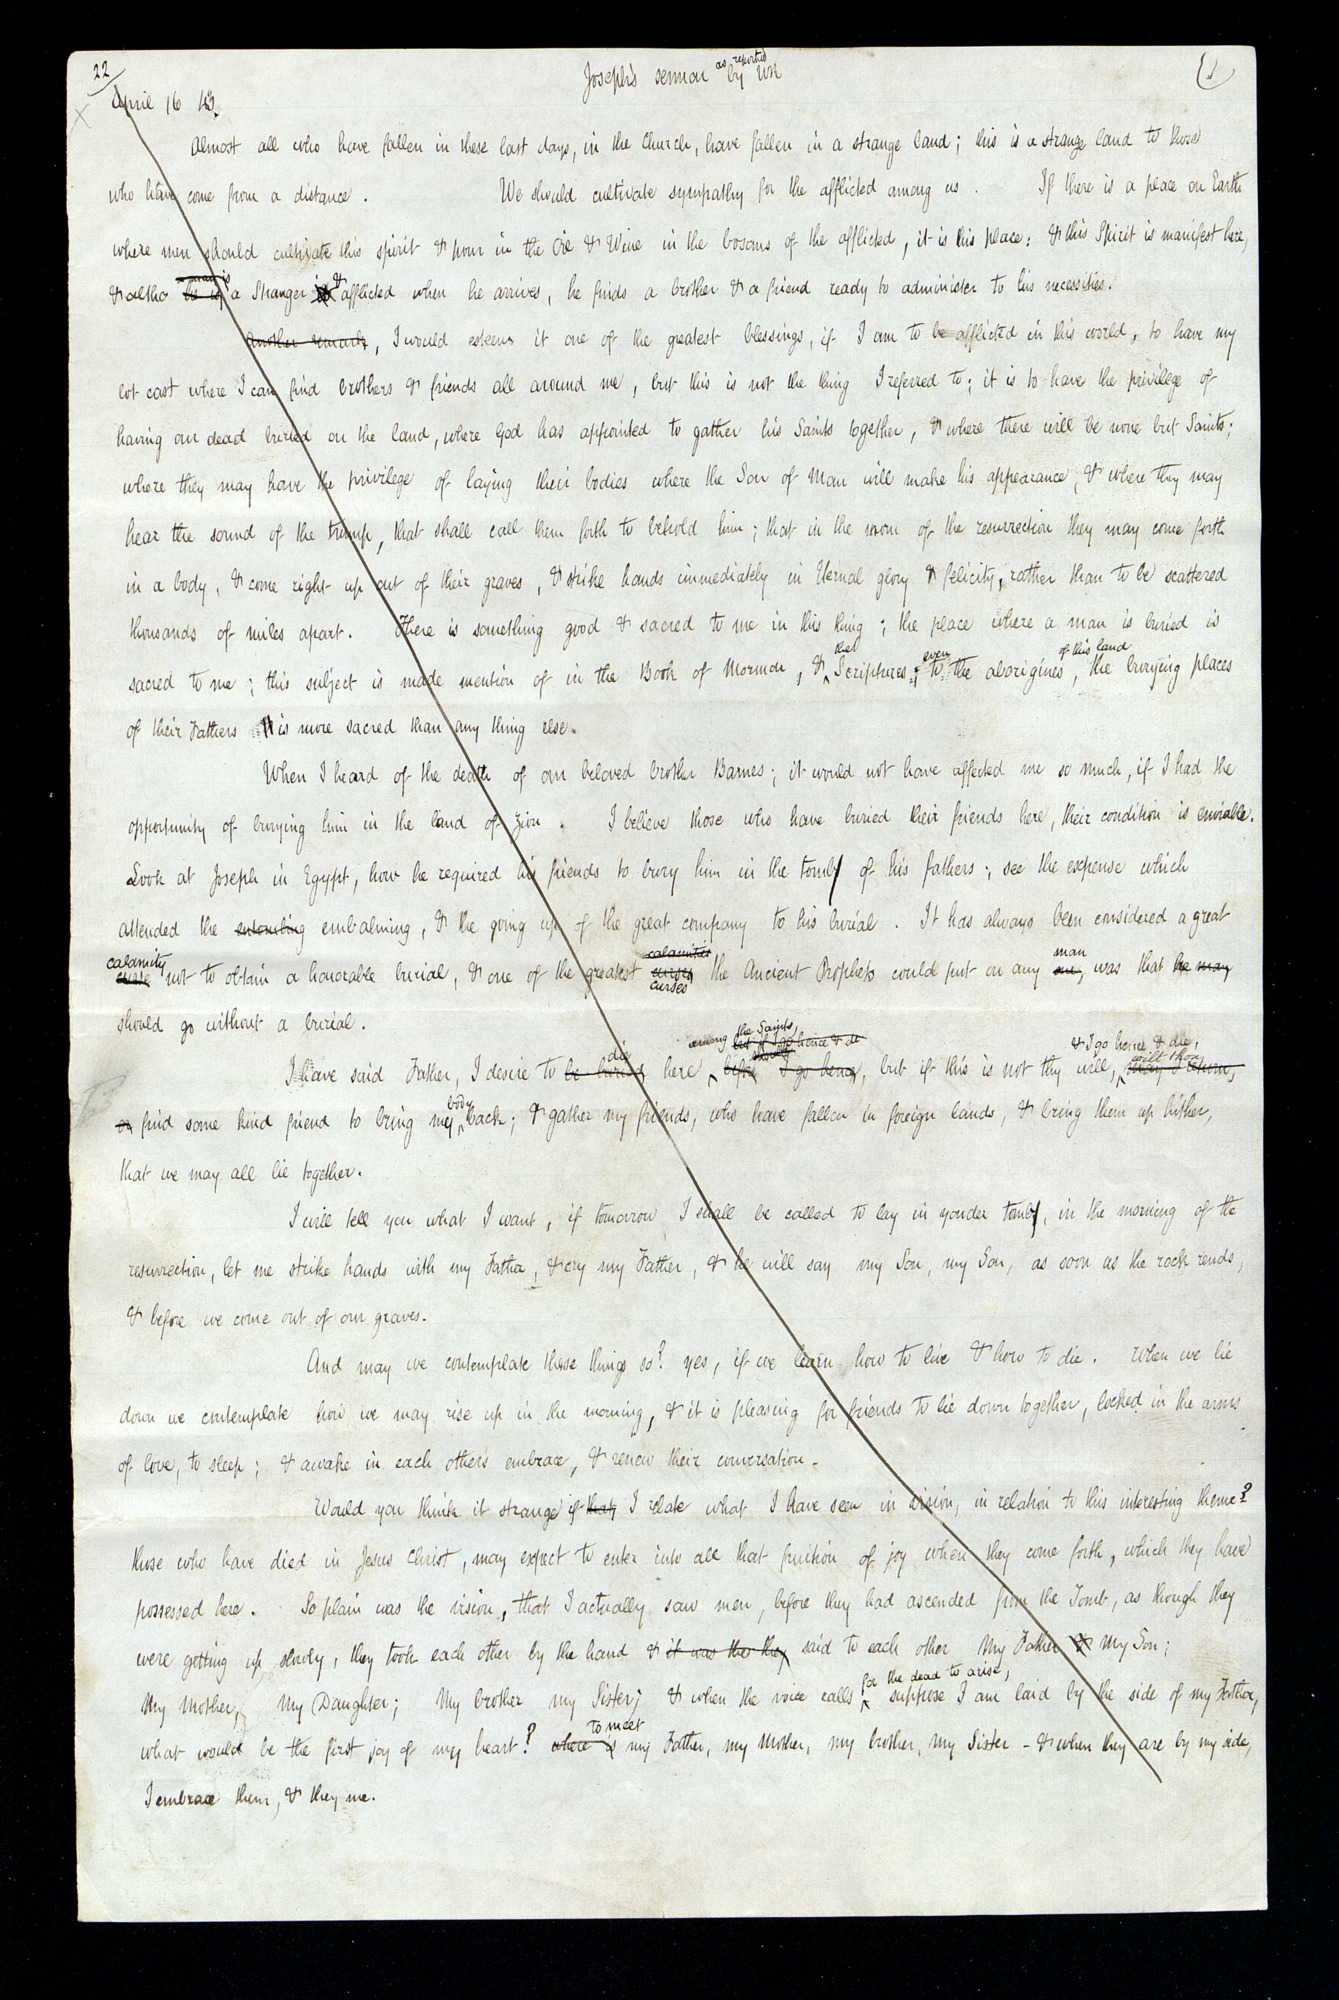 22
Joseph's sermon as reported by WR
1
April 16 43.
Almost all who have fallen in these last days, in the Church, have fallen in a strange land; this is a strange land to those
who have come from a distance. We should cultivate sympathy for the afflicted among us. If there is a place on Earth
where men should cultivate this spirit & pour in the Oil & Wine in the bosoms of the afflicted, it is this place: & this Spirit is manifest here,
& altho he is a man is a Stranger & afflicted when he arrives, he finds a brother & a friend ready to administer to his necessities.
Another remark, I would esteem it one of the greatest blessings, if I am to be afflicted in this world, to have my
lot cast where I can find brothers & friends all around me, but this is not the thing I referred to; it is to have the privilege of
having our dead buried on the land, where God has appointed to gather his Saints together, & where there will be none but Saints;
where they may have the privilege of laying their bodies where the Son of Man will make his appearance, & where they may
hear the sound of the trump, that shall call them forth to behold him; that in the morn of the resurrection they may come forth
in a body, & come right up out of their graves, & strike hands immediately in eternal glory & felicity, rather than to be scattered
thousands of miles apart. There is something good & sacred to me in this thing; the place where a man is buried is
sacred to me; this subject is made mention of in the Book of Mormon, & the Scriptures; even to the aborigines of this land, the burying places
of their Fathers is more sacred than any thing else.
When I heard of the death of our beloved brother Barnes; it would not have affected me so much, if I had the
opportunity of burying him in the land of Zion. I believe those who have buried their friends here, their condition is enviable.
Look at Joseph in Egypt, how he required his friends to bury him in the tomb of his fathers; see the expense which
attended the entombing embalming, & the going up of the great company to his burial. It has always been considered a great
curse calamity not to obtain a honorable burial, & one of the greatest curses calamities curses the Ancient Prophets could put on any one, man was that he may
should go without a burial.
I have said Father, I desire to be buried die here before I go hence among the Saints, but if I go hence & die, but if this is not thy will, may I return, & I go hence & die, wilt thou
or find some kind friend to bring my body back; & gather my friends, who have fallen in foreign lands, & bring them up hither,
that we may all lie together.
I will tell you what I want, if tomorrow I shall be called to lay in yonder tomb, in the morning of the
resurrection, let me strike hands with my Father, & cry my Father, & he will say my Son, my Son, as soon as the rock rends,
& before we come out of our graves.
And may we contemplate these things so? yes, if we learn how to live & how to die. When we lie
down we contemplate how we may rise up in the morning, & it is pleasing for friends to lie down together, locked in the arms
of love, to sleep; & awake in each others embrace, & renew their conversation.
Would you think it strange if that I relate what I have seen in vision, in relation to this interesting theme?
those who have died in Jesus Christ, may expect to enter into all that fruition of joy when they come forth, which they have
possessed here. So plain was the vision, that I actually saw men, before they had ascended from the Tomb, as though they
were getting up slowly, they took each other by the hand & it was the they said to each other My Father & My Son;
My Mother, My Daughter; My brother my Sister; & when the voice calls for the dead to arise, suppose I am laid by the side of my Father,
what would be the first joy of my heart? where is to meet my Father, my Mother, my brother, my Sister - & when they are by my side,
I embrace them, & they me.